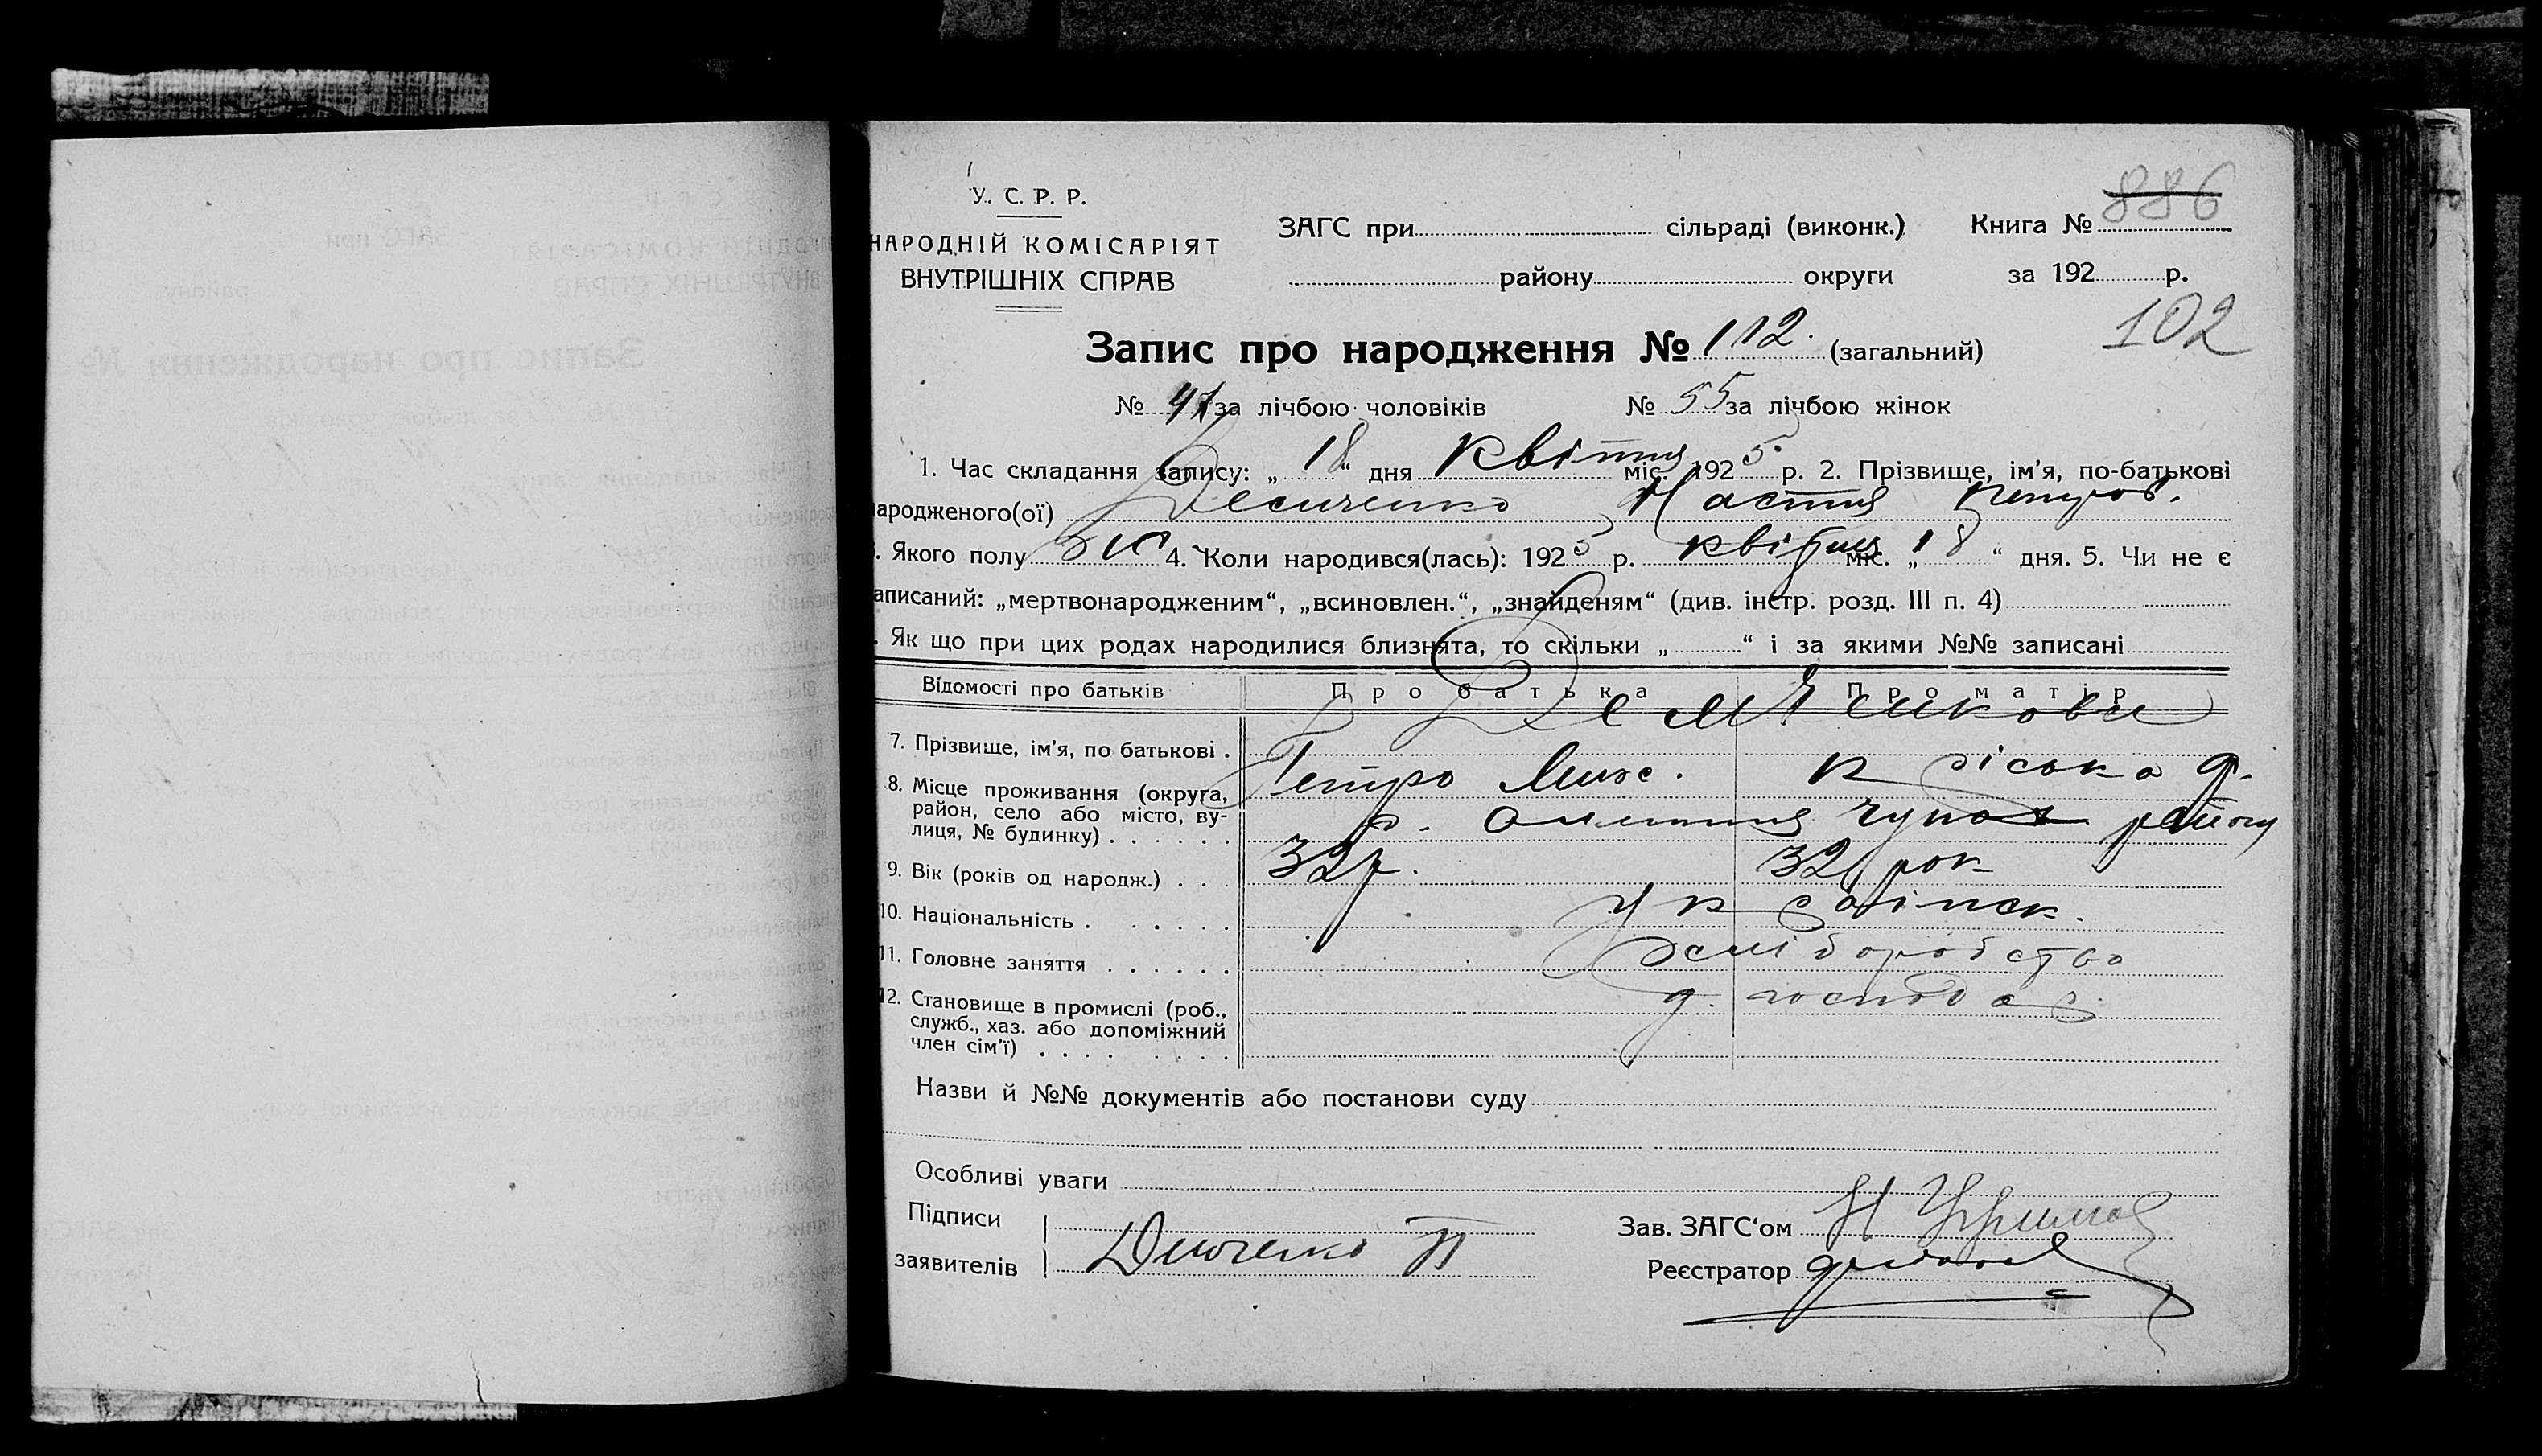 У. С. Р. Р.
НАРОДНІЙ КОМІСАРІЯТ
ВНУТРІШНІХ СПРАВ
ЗАГС при сільраді (виконк.) Книга № 886
району округи за 192 р.
102
Запис про народження № 112. (загальний)
№ 47 за лічбою чоловіків № 55 за лічбою жінок
1. Час складання запису: „18“ дня квітня міс. 1925 р. 2. Прізвище, ім'я, по-батькові
народженого(ої) Настя Петров.
3. Якого полу жін 4. Коли народився(лась): 1925 р. квітня міс. „18“ дня. 5. Чи не є
записаний: „мертвонародженим“, „всиновлен.“, „знайденям“ (див. інстр. розд. III п. 4)
Як що при цих родах народилися близнята, то скільки „ “ і за якими №№ записані
Відомості про батьків Про батька Про матір
7. Прізвище, ім'я, по батькові .
Петро Мих.
8. Місце проживання (округа,
район, село або місто, ву-
лиця, № будинку) . . . . . .
району
9. Вік (років од народж.) . . . 32 р. 32 рок
10. Національність . . . . . . Українск.
11. Головне заняття . . . . . . хліборобство
12. Становище в промислі (роб.,
служб., хаз. або допоміжний
член сім'ї) . . . . . . . .
господар
Назви й №№ документів або постанови суду
Особливі уваги
Підписи
заявителів
Зав. ЗАГС'ом
Реєстратор